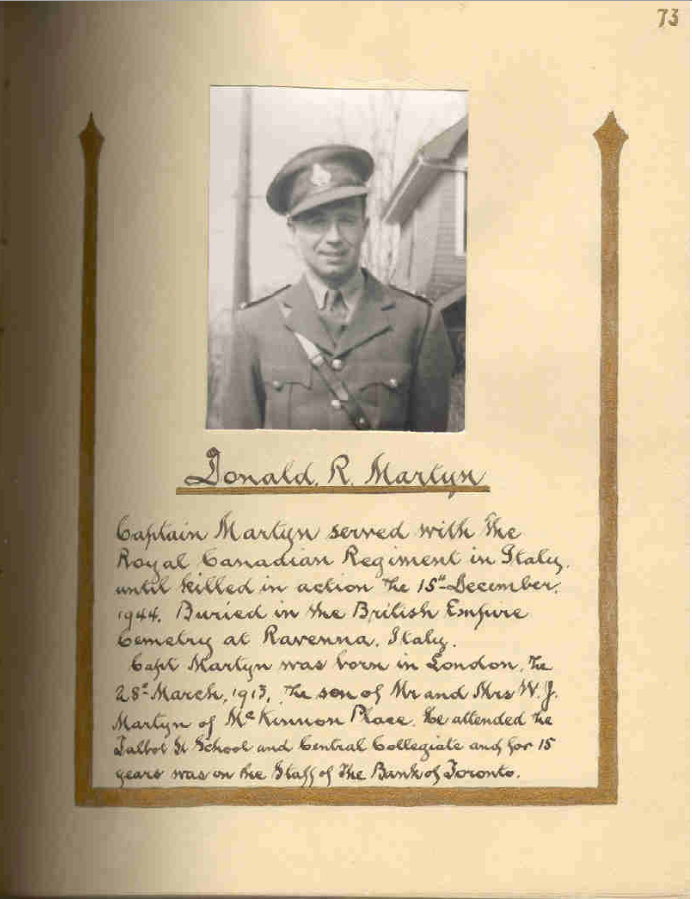 73
Donald. R. Martyn
Captain Martyn served with the
Royal Canadian Regiment in Italy,
until killed in action the 15th December,
1944. Buried in the British Empire
Cemetry at Ravenna. Italy.
Capt Martyn was born in London, the
28th March, 1913, the son of Mr and Mrs W. J.
Martyn of McKinnon Place. He attended the
Talbot St School and Central Collegiate and for 15
years was on the Staff of The Bank of Toronto.